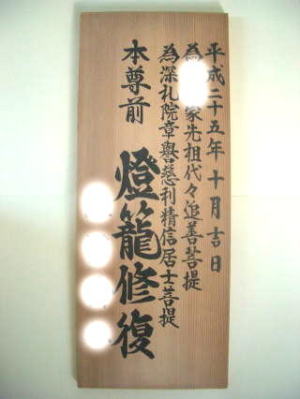 平成二十五年十月吉日
為 家先祖代々追善菩提
為深礼院章譽慈利精信居士菩提
本尊前 燈籠修復